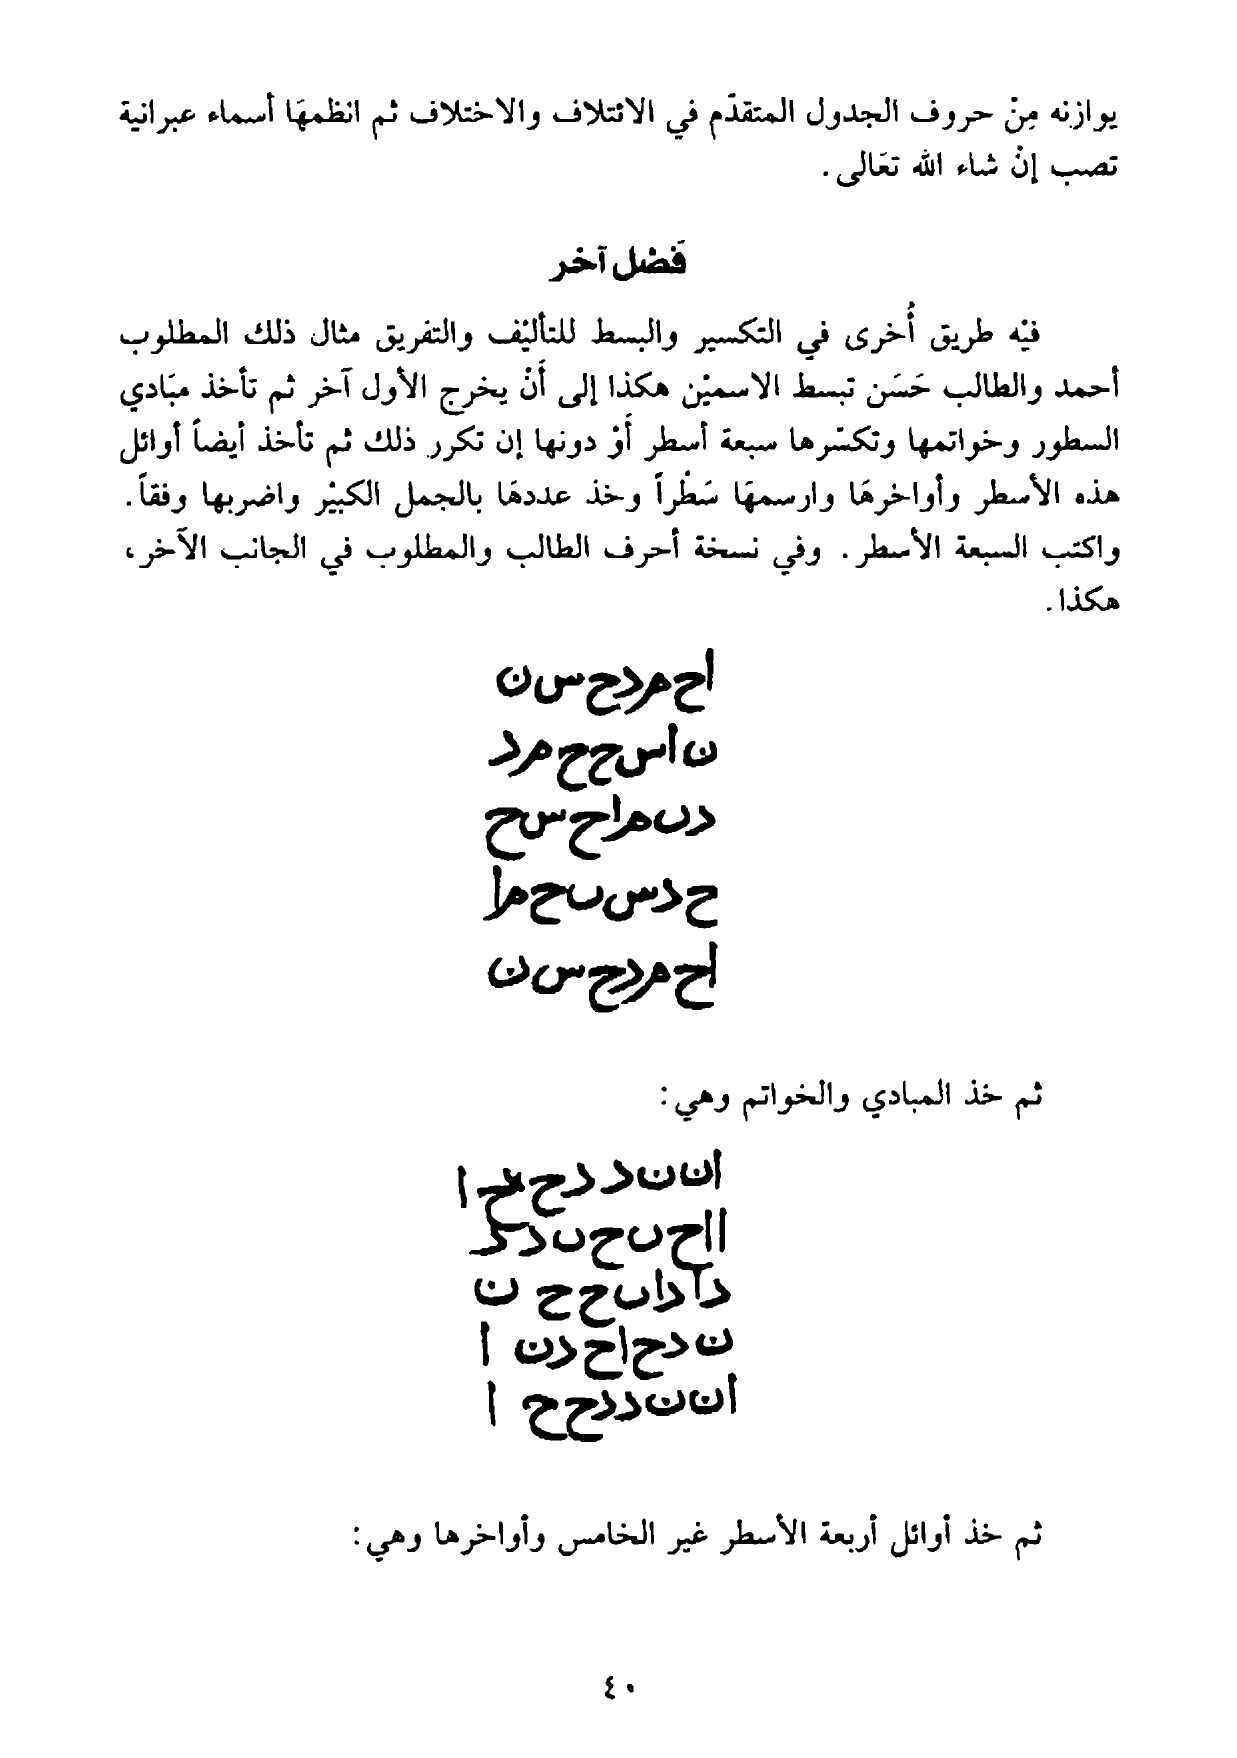 يوازنه مِنْ حروف الجدول المتقدّم في الائتلاف والاختلاف ثم انظمهَا أسماء عبرانية
تصب إنْ شاء الله تعَالى .
فَصْل آخر
فيْه طريق أُخرى في التكسير والبسط للتأليْف والتفريق مثال ذلك المطلوب
أحمد والطالب حَسَن تبسط الاسميْن هكذا إلى أَنْ يخرج الأول آخر ثم تأخذ مبَادي
السطور وخواتمها وتكسّرها سبعة أسطر أَوْ دونها إن تكرر ذلك ثم تأخذ أيضاً أوائل
هذه الأسطر وأواخرهَا وارسمهَا سَطْراً وخذ عددهَا بالجمل الكبيْر واضربها وفقاً .
واكتب السبعة الأسطر . وفي نسخة أحرف الطالب والمطلوب في الجانب الآخر ،
هكذا .
ا ح م د ح س ن
ن ا س ح ح م د
د ن م ا ح س ح
ح د س ن ح م ا
ا ح م د ح س ن
ثم خذ المبادي والخواتم وهي :
ا ن ن د د ح ح ا
ا ا ح ن ح ن د د
د ا د ا ن ح ح ن
ن د ح ا ح د ن ا
ا ن ن د د ح ح ا
ثم خذ أوائل أربعة الأسطر غير الخامس وأواخرها وهي :
٤٠